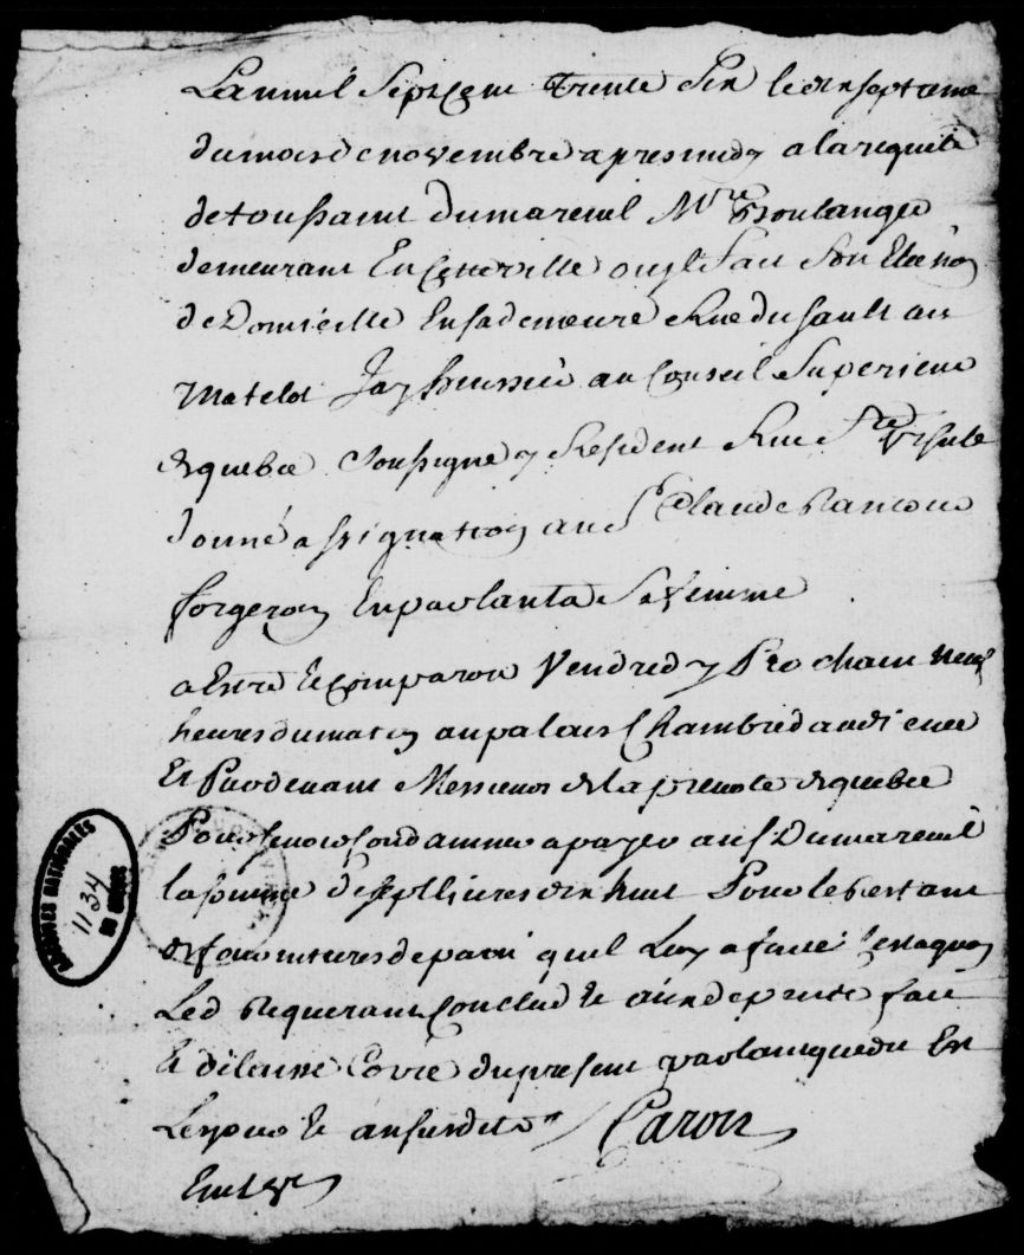 Lanmil Sept Cent Trente Six le dix septieme
du mois de novembre apres midy a la requete
de toussaint Dumareuil Mtre Boulanger
demeurant En cette ville ou il fait son Election
de Domicille En sa demeure Rue du sault au
Matelot Jay huissier au Conseil Superieur
de quebec soussigné y Resident Rue Ste Ursule
donné assignation au Sr Claude Rancour
forgeron En parlant a Sa femme
a Estre et comparoir Vendredy Prochain neuf
heures du matin au palais Chambre d audience
Et Pardevant Messieurs de la prevoste de quebec
Pour se voir Condamner a payer au S. Dumareuil
la somme de sept livres dix huit Pour le Restant
de fournitures de pain quil Luy a faite
Led Requerant Conclud et aux depens fait
Et delaissé Copie du present parlant que du Est
Les jour et an susdits / Caron